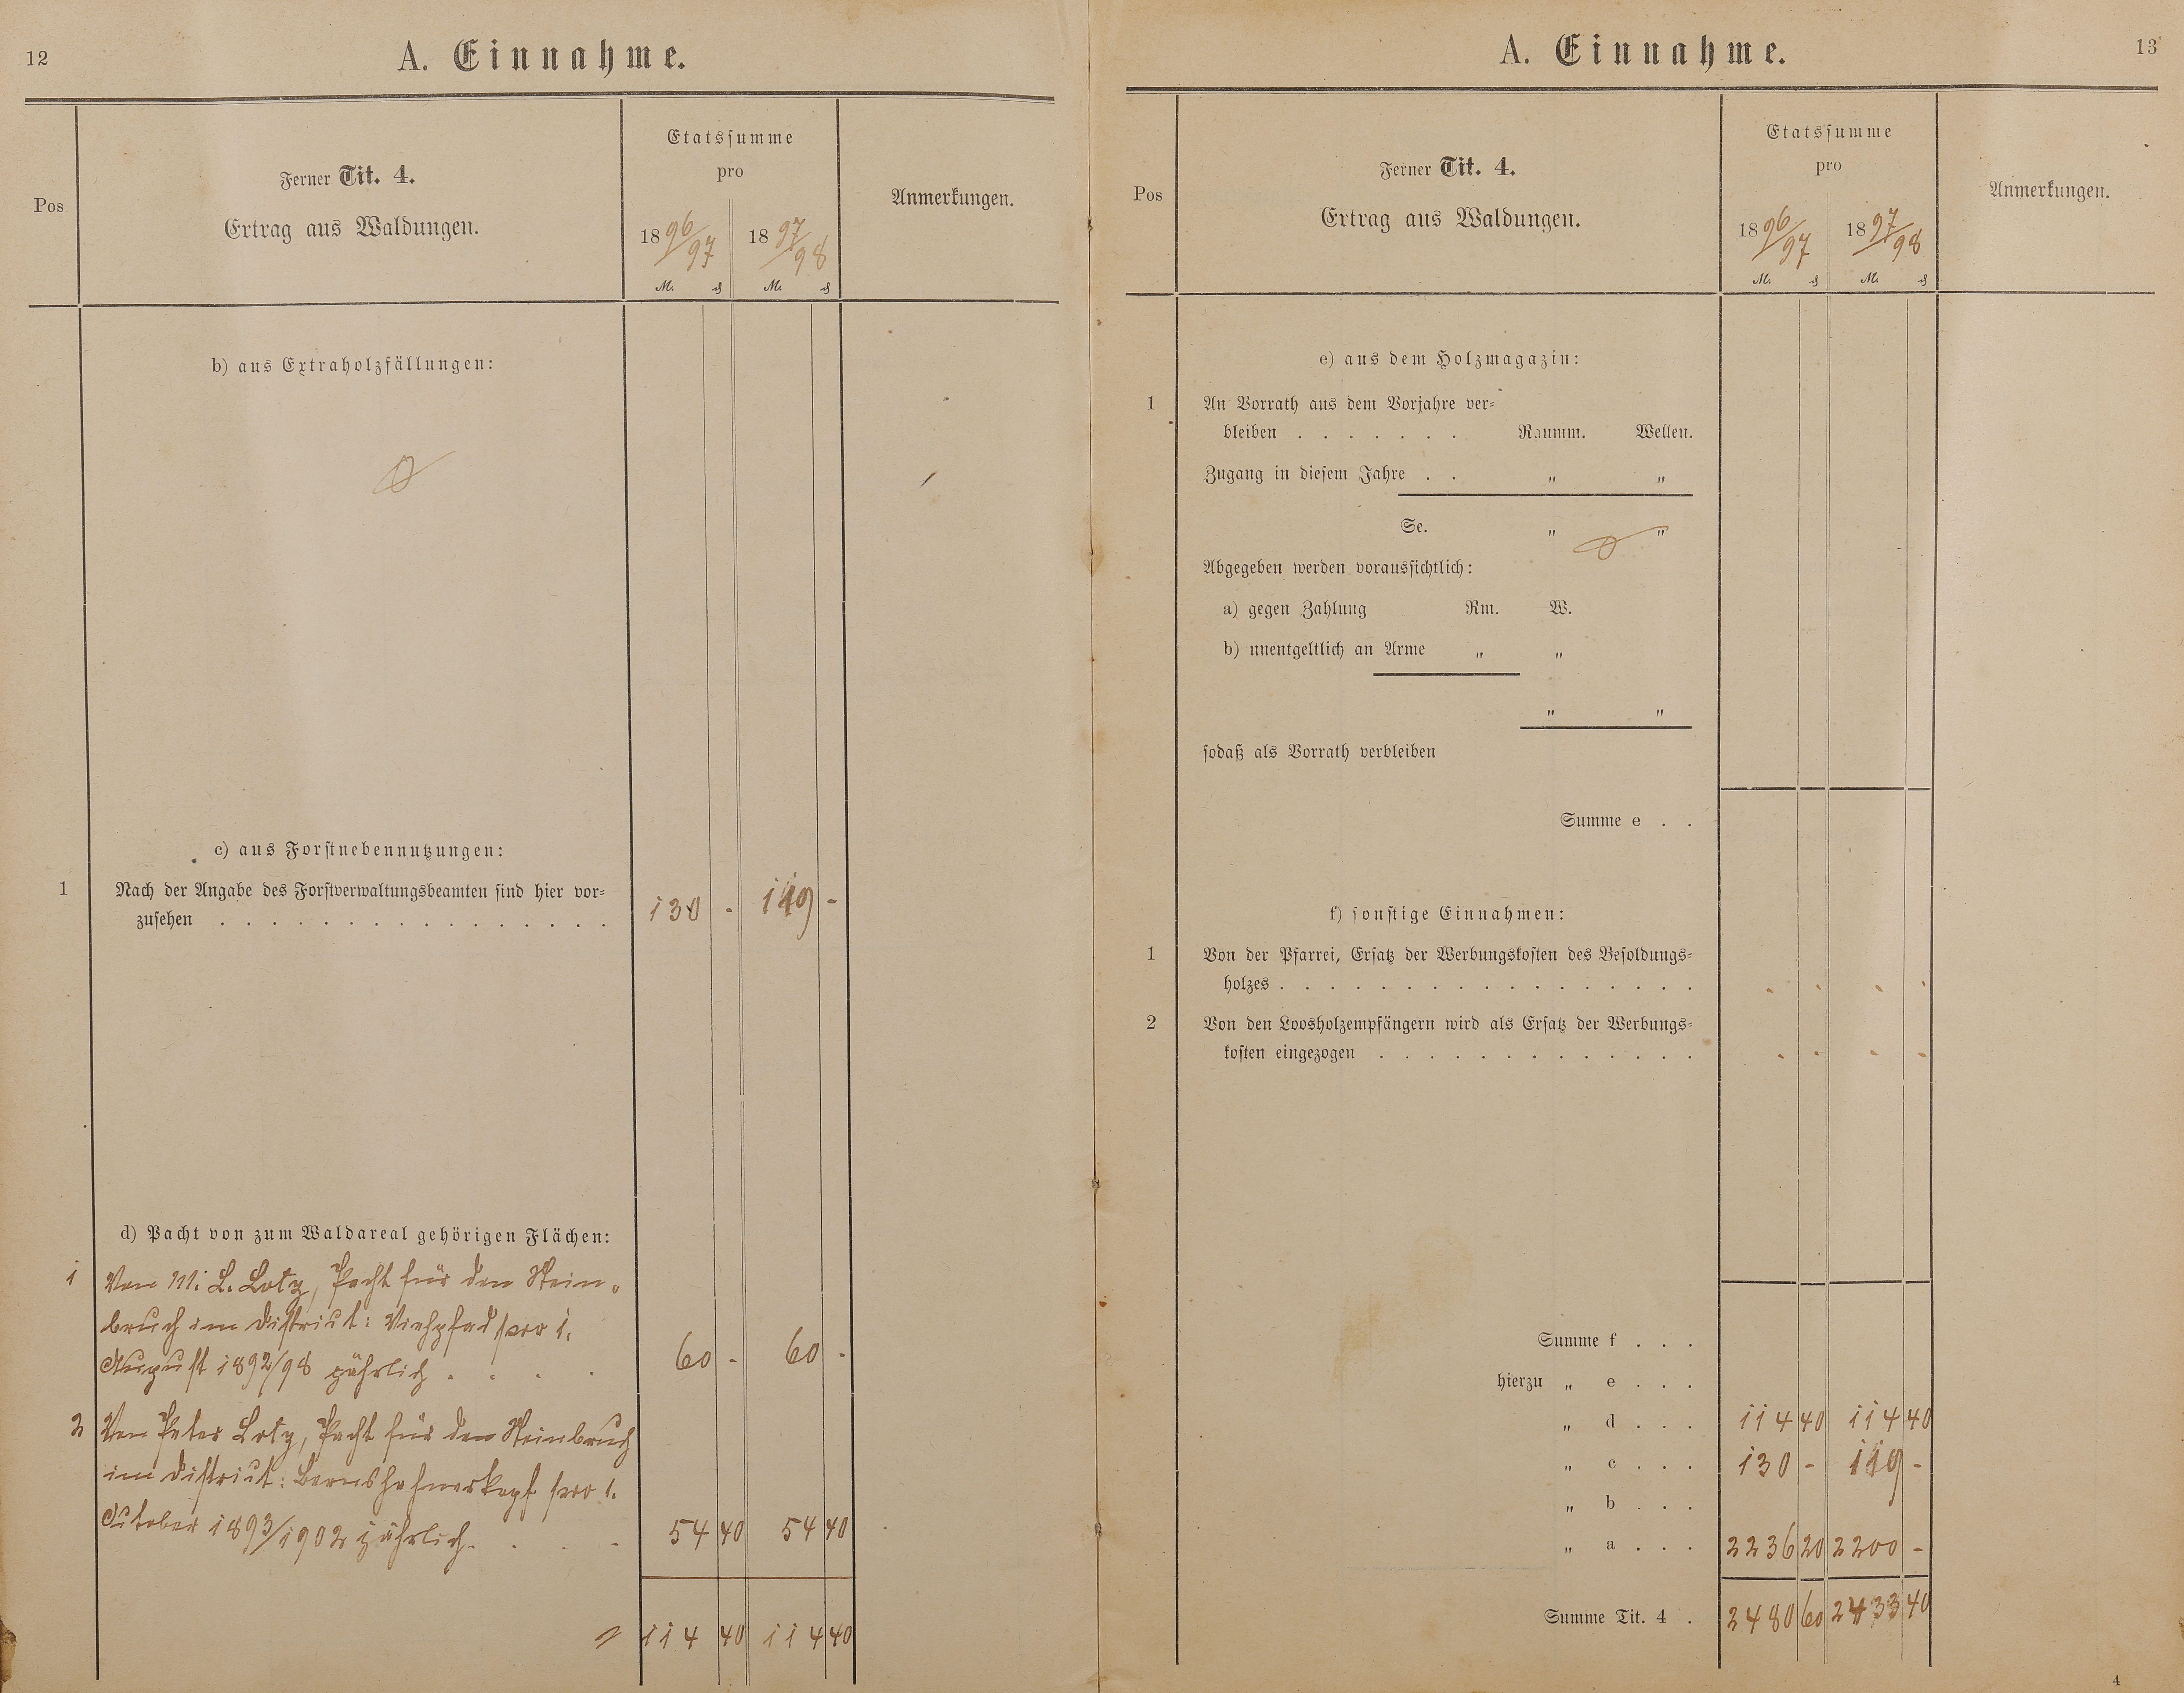 12
A. Einnahme.
Pos
Ferner Tit. 4.
Ertrag aus Waldungen.
Etatssumme
pro
1896/97 1897/98
M. ₰ M. ₰
Anmerkungen.
b) aus Extraholzfällungen:
c) aus Forstnebennutzungen:
1 Nach der Angabe des Forstverwaltungsbeamten sind hier vor=
zusehen . . . . . . . . . . . . . . . . 130 - 119 -
d) Pacht von zum Waldareal gehörigen Flächen:
1 Von M. L. Lotz, Pacht für den Stein=
bruch im District: Viehpfad pro 1.
August 1892/98 jährlich . . . . 60 - 60 -
2 Von Peter Lotz, Pacht für den Steinbruch
im District: Bernshahnerkopf pro 1.
October 1893/1902 jährlich . . . . 54 40 54 40
114 40 114 40
A. Einnahme.
13
Pos
Ferner Tit. 4.
Ertrag aus Waldungen.
Etatssumme
pro
1896/97 1897/98
M. ₰ M. ₰
Anmerkungen.
e) aus dem Holzmagazin:
1 An Vorrath aus dem Vorjahre ver=
bleiben . . . . . . . Raumm. Wellen.
Zugang in diesem Jahre . . " "
Se. " "
Abgegeben werden voraussichtlich:
a) gegen Zahlung Rm. W.
b) unentgeltlich an Arme " "
" "
sodaß als Vorrath verbleiben
Summe e . .
f) sonstige Einnahmen:
1 Von der Pfarrei, Ersatz der Werbungskosten des Besoldungs=
holzes . . . . . . . . . . . . . . . . . - - - -
2 Von den Loosholzempfängern wird als Ersatz der Werbungs=
kosten eingezogen . . . . . . . . . . . . . - - - -
Summe f . . .
hierzu " e . . .
" d . . . 114 40 114 40
" c . . . 130 - 119 -
" b . . .
" a . . . 2236 20 2200 -
Summe Tit. 4 . 2480 60 2433 40
4